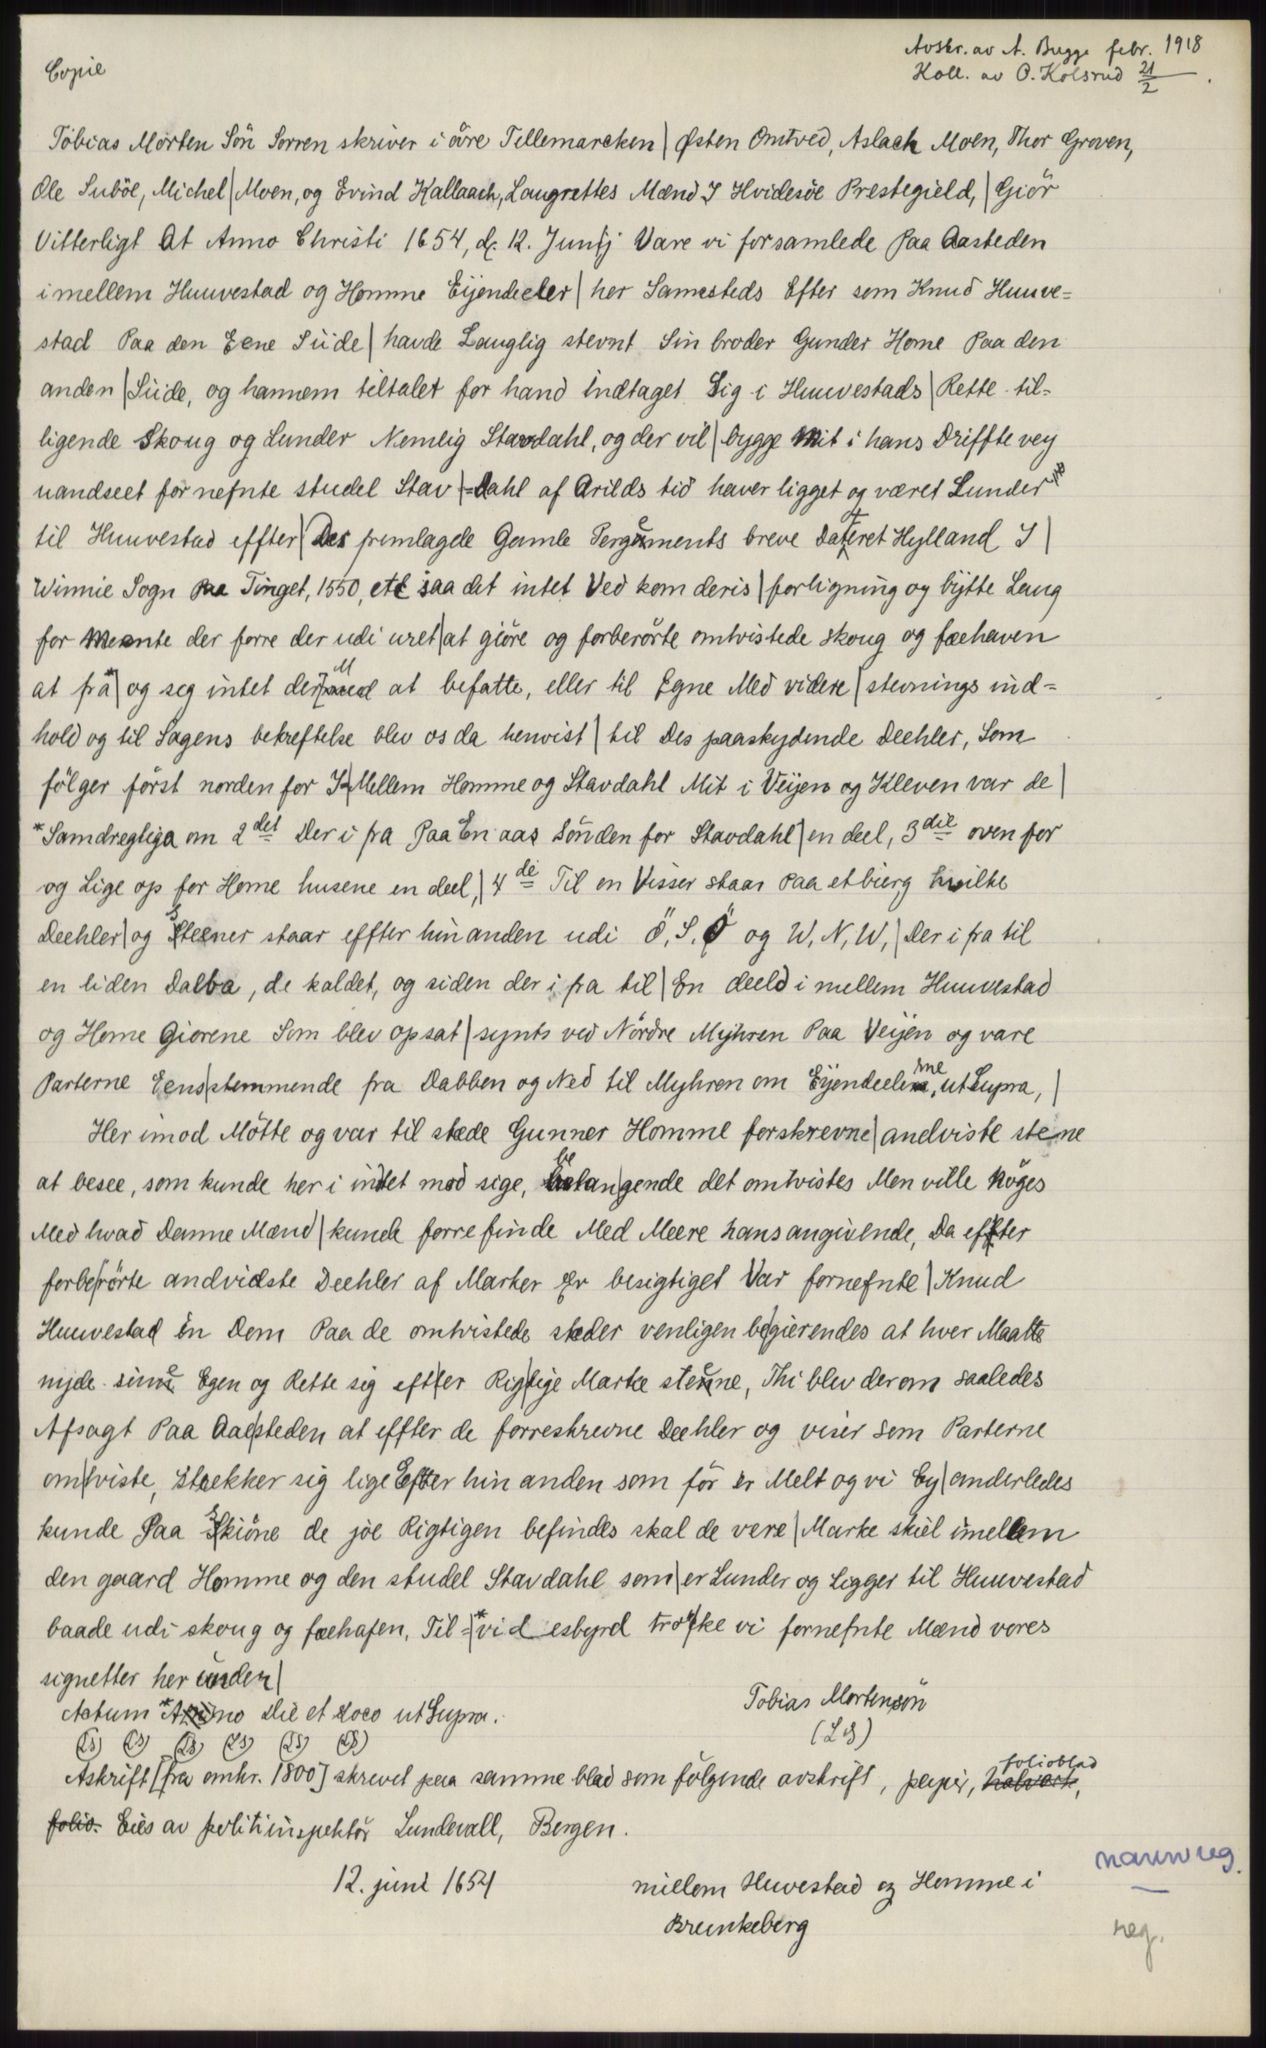 Avskr. av A. Bugge febr. 1918
Copie
Koll. av O. Kolsrud 21/2.
Tobias Morten Sön Sorren skriver i övre Tellemarcken | Østen Omtved, Aslach Moen, Thor Groven,
Ole Suböe, Michel | Moen, og Evind Kallaach, Laugrettes Mænd I Hvidesöe Prestegield, | Giör
Vitterligt At Anno Christi 1654, d. 12. Junij Vare vi forsamlede Paa Aasteden
imellem Huuvestad og Homme Eijendeeler | her Samesteds Efter som Knud Huuve=
stad Paa den Eene Siide | havde Lauglig stevnt Sin broder Gunder Home Paa den
anden | Siide, og hannem tiltalet for hand indtaget Sig i Huuvestads | Rette til=
ligende Skoug og Lunder Nemlig Stavdahl, og der vil | bygge Mit i hans Driffte vey
uandseet fornefnte studel Stav |=Dahl af Arilds tid haver ligget og været Lunder
til Huuvestad effter | Des fremlagde Gamle Pergements breve Dateret Hylland I |
Winnie Sogn Paa Tinget, 1550, etc saa det intet Ved kom deris | forligning og bÿtte Laug
for Meente der forre der udi uret | at giöre og forberörte omtvistede skoug og fæehaven
at frå* | og seg intet der Med at befatte, eller til Egne Med videre | stevnings ind=
hold og til Sagens bekreftelse blev os da henvist | til Des paaskydende Deehler, Som
fölger först norden for I | Mellem Homme og Stavdahl Mit i Veijen og Kleven var de |
*Samdregtiga om 2det Der i fra Paa En aas Sönden for Stavdahl | en deel, 3die oven for
og Lige op for Home husene en deel, | 4de Til en Visser staar Paa et bierg hvilke
Deehler | og Steener staar effter hin anden udi Ö, S, Ö og W, N, W, | Der i fra til
en liden Dalba, de kaldet, og siden der i fra til | En deeld i mellem Huuvestad
og Home Giorene Som blev opsat | synts ved Nördre Myhren Paa Veijen og vare
Parterne Eens | stemmende fra Dabben og Ned til Myhren om Eijendeelerne, ut Supra, |
Her imod Mötte og var til stede Gunner Homme forskrevne | andviste stene
at besee, som kunde her i intet mod sige, belan | gende det omtvistes Men ville nöges
Med hvad Danne Mænd | kunde forre finde Med Meere hans angivende, Da effter
forbe | rörte andvidste Deehler af Marker Er besigtiget Var fornefnte | Knud
Huuvestad én Dom Paa de omtvistede steder venligen be | gierendes at hver Maatte
nyde sine Egen og Rette sig eft | er Rig | tige Marke steene, Thi blev derom saaledes
Afsagt Paa Aas | steden at effter de forreskrevne Deehler og viser som Parterne
om | tviste, stækker sig lige Efter hin anden som för er Melt og vi Ey | anderledes
kunde Paa Skiöne de jóe Rigtigen befindes skal de vere | Marke skiel imellem
den gaard Homme og den studel Stavdahl som | er Lunder og Ligger til Huuvestad
baade udi skoug og fæehafen, Til = | *vid esbyrd trøcke vi fornefnte Mænd vores
signetter her under |
Actum *Anno Die et Loco ut Supra.
Tobias Mortensön
(LS) (LS) (LS) (LS) (LS) (LS)
(LS)
Avskrift [fra omkr. 1800] skrevet paa samme blad som fölgende avskrift, papir, folioblad
Eies av politiinspektör Lundevall, Bergen.
12. juni 1654
millom Huvestad og Homme i
Brunkeberg
navnreg.
reg.